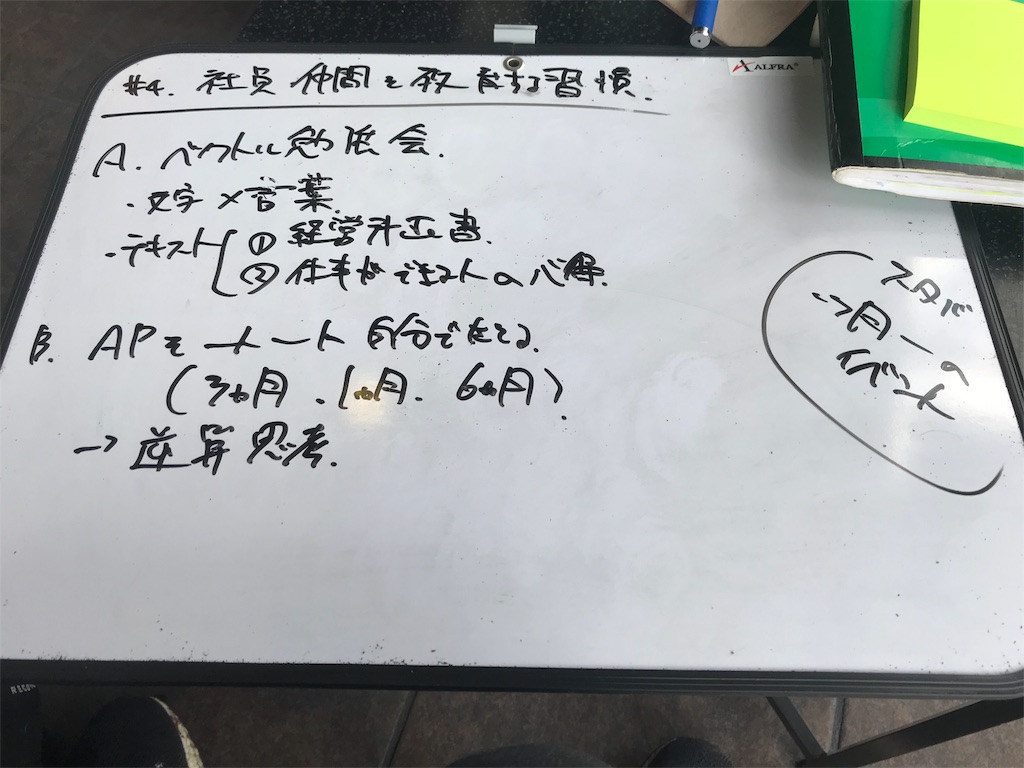 #4. 社員 仲間を教育する習慣.
ALFRA
A. ベクトル勉強会.
・文字×言葉
・テキスト ① 経営計画書.
② 仕事ができる人の心得.
B. APをノート 自分でたてる.
(3ヶ月. 1ヵ月. 6ヵ月).
→ 逆算思考.
スタバ